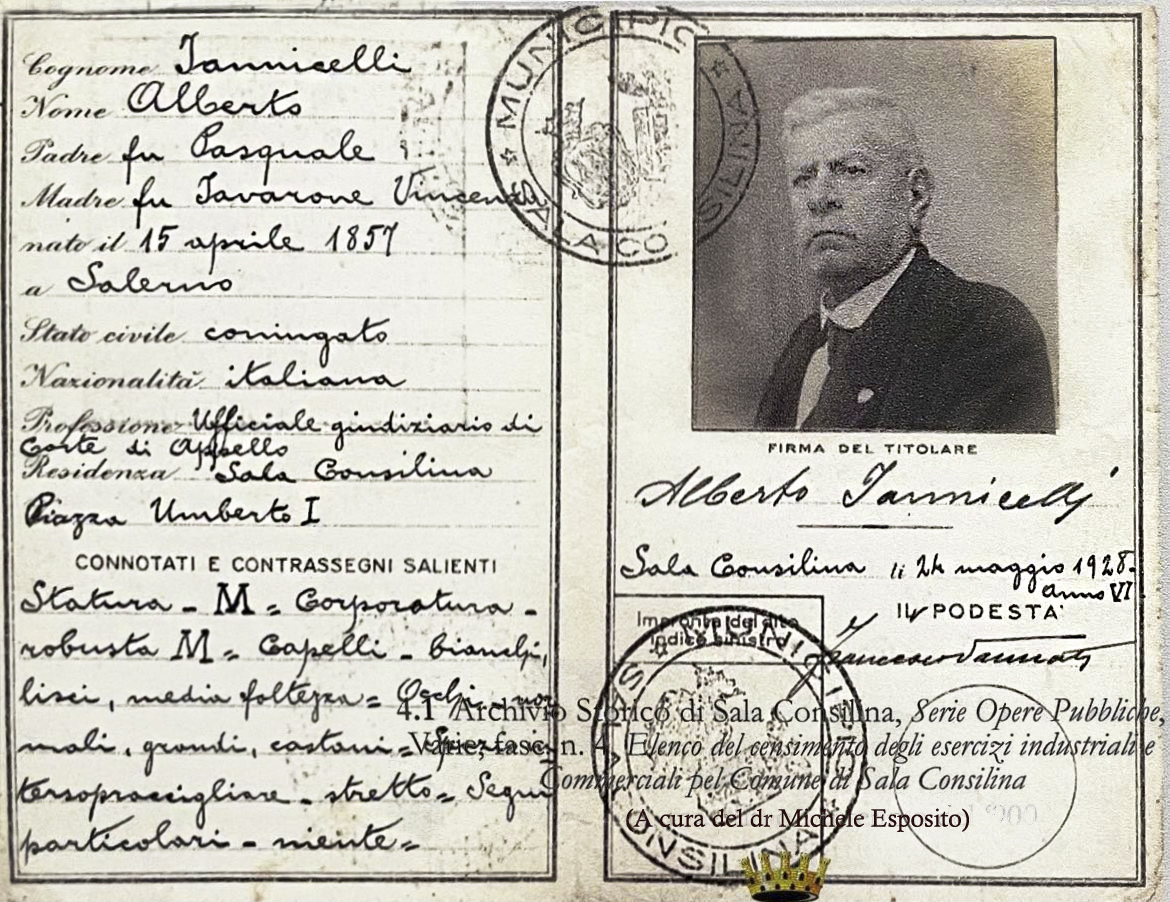 Cognome Iannicelli
Nome Alberto
Padre fu Pasquale
Madre fu Iavarone Vincenza
nato il 15 aprile 1857
a Salerno
Stato civile coniugato
Nazionalità italiana
Professione Ufficiale giudiziario di
Corte di Appello
Residenza Sala Consilina
Piazza Umberto I
CONNOTATI E CONTRASSEGNI SALIENTI
Statura - M = Corporatura -
robusta M = Capelli - bianchi,
lisci, media foltezza = Occhi - nor
mali, grandi, castani =
tersopraccigliare - stretto = Segni
particolari - niente =
MUNICIPIO
SALA CONSILINA
FIRMA DEL TITOLARE
Alberto Iannicelli
Sala Consilina li 24 maggio 1928
Anno VI
IL PODESTA'
Impronta del dito
indice sinistro
SALA CONSILINA
4.1 Archivio Storico di Sala Consilina, Serie Opere Pubbliche,
Varie, fasc. n. 4, Elenco del censimento degli esercizi industriali e
Commerciali pel Comune di Sala Consilina
(A cura del dr Michele Esposito)